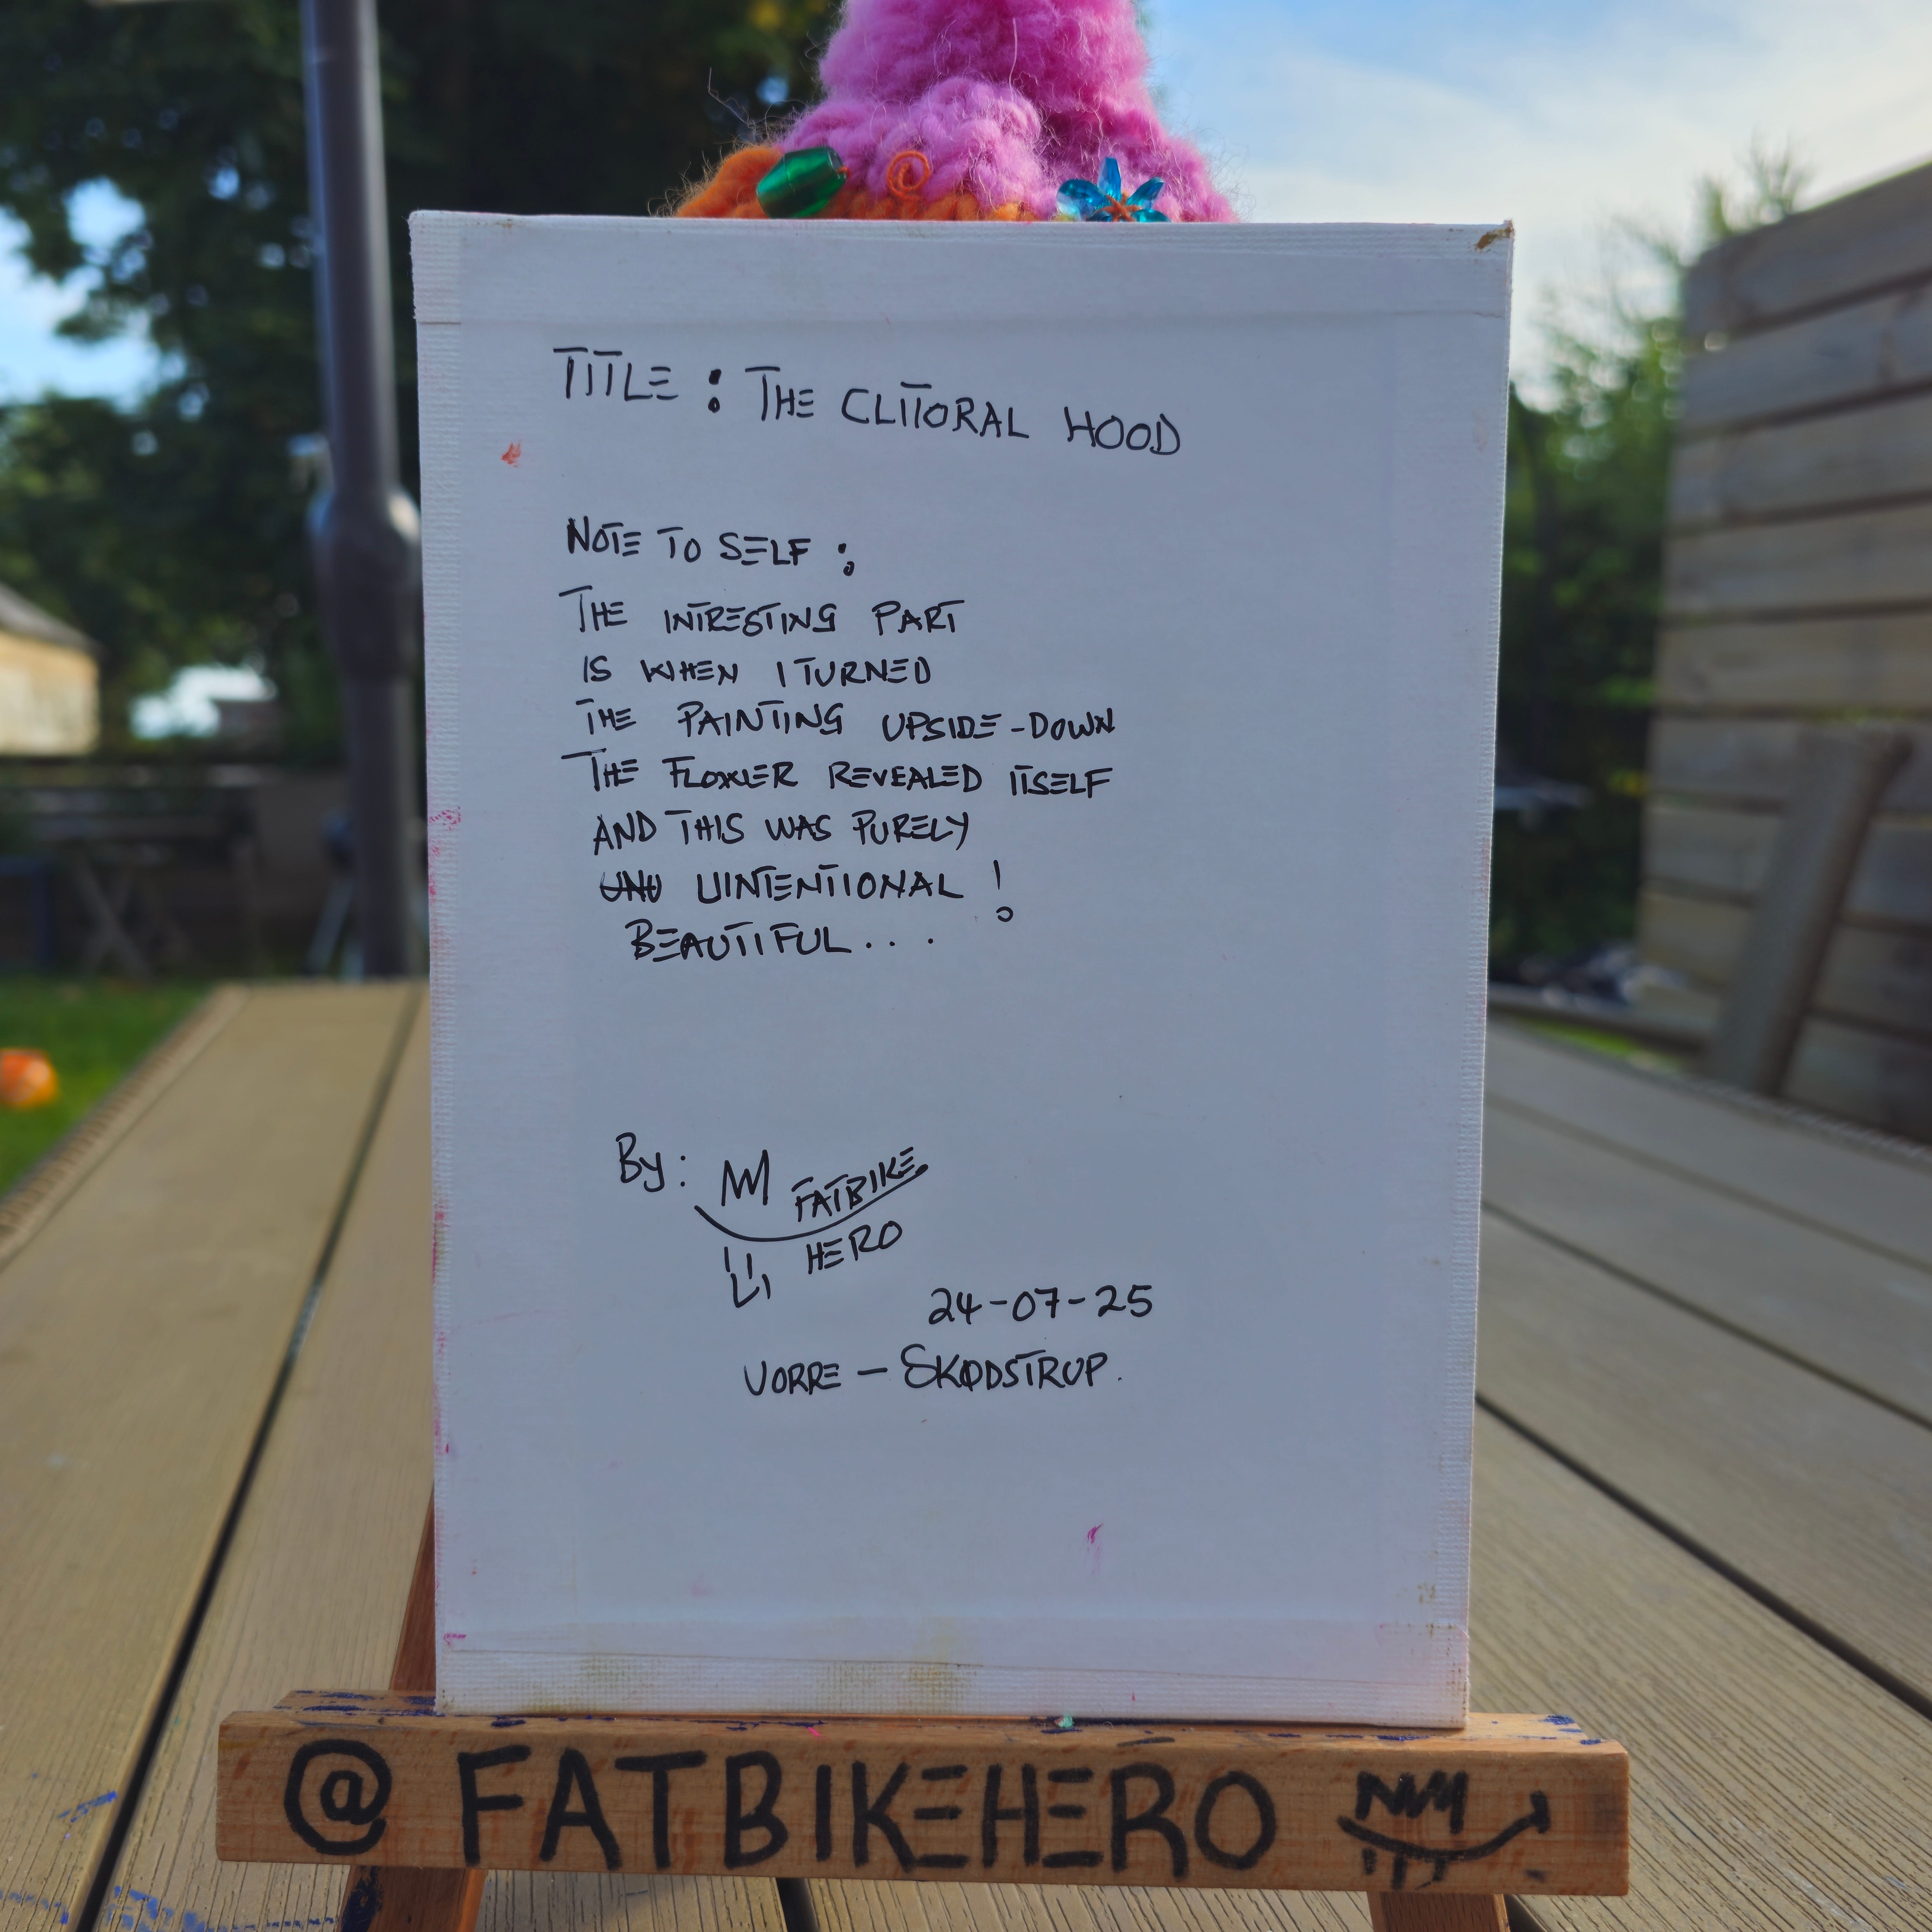 TITLE : THE CLITORAL HOOD
NOTE TO SELF :
THE INTRESTING PART
IS WHEN I TURNED
THE PAINTING UPSIDE-DOWN
THE FLOWER REVEALED ITSELF
AND THIS WAS PURELY
UNU UINTENTIONAL !
BEAUTIFUL....
By: FATBIKE
HERO
24-07-25
VORRE - SKØDSTRUP.
@FATBIKEHERO